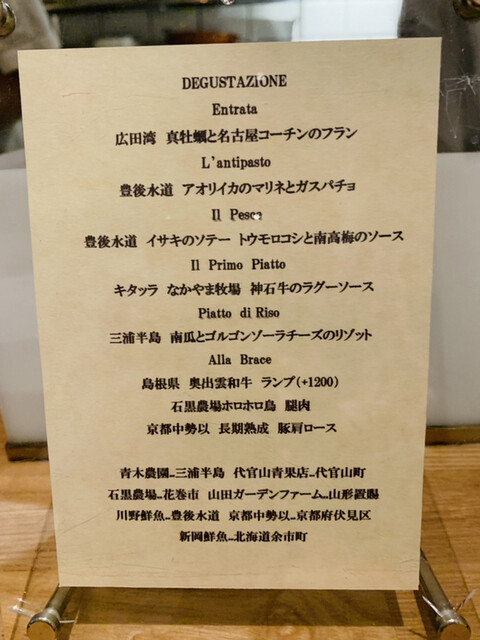 DEGUSTAZIONE
Entrata
広田湾 真牡蠣と名古屋コーチンのフラン
L'antipasto
豊後水道 アオリイカのマリネとガスパチョ
Il Pesce
豊後水道 イサキのソテー トウモロコシと南高梅のソース
Il Primo Piatto
キタッラ なかやま牧場 神石牛のラグーソース
Piatto di Riso
三浦半島 南瓜とゴルゴンゾーラチーズのリゾット
Alla Brace
島根県 奥出雲和牛 ランプ(+1200)
石黒農場ホロホロ鳥 腿肉
京都中勢以 長期熟成 豚肩ロース
青木農園..三浦半島 代官山青果店..代官山町
石黒農場..花巻市 山田ガーデンファーム..山形置賜
川野鮮魚..豊後水道 京都中勢以..京都府伏見区
新岡鮮魚..北海道余市町